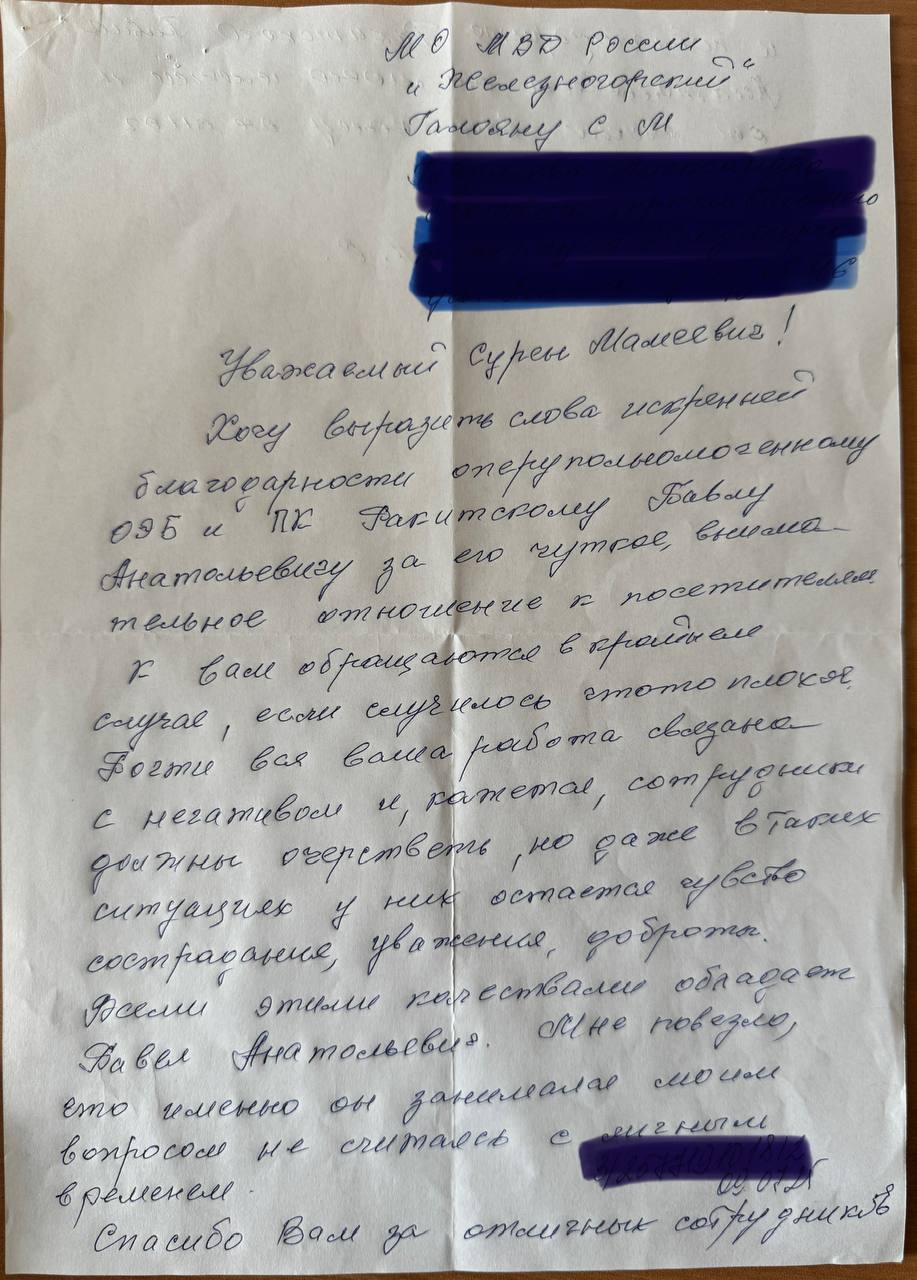 МО МВД России
"Железногорский"
Галояну С М
Уважаемый Сурен Мамеевич!
Хочу выразить слова искренней
благодарности оперуполномоченному
ОЭБ и ПК Ракитскому Павлу
Анатольевичу за его чуткое, внима-
тельное отношение к посетителям.
К вам обращаются в крайнем
случае, если случилось чтото плохое.
Почти вся ваша работа связана
с негативом и, кажется, сотрудники
должны очерстветь, но даже в таких
ситуациях у них остается чувство
сострадания, уважения, доброты.
Всеми этими качествами обладает
Павел Анатольевич. Мне повезло,
что именно он занимался моим
вопросом не считаясь с личным
временем.
Спасибо Вам за отличных сотрудников